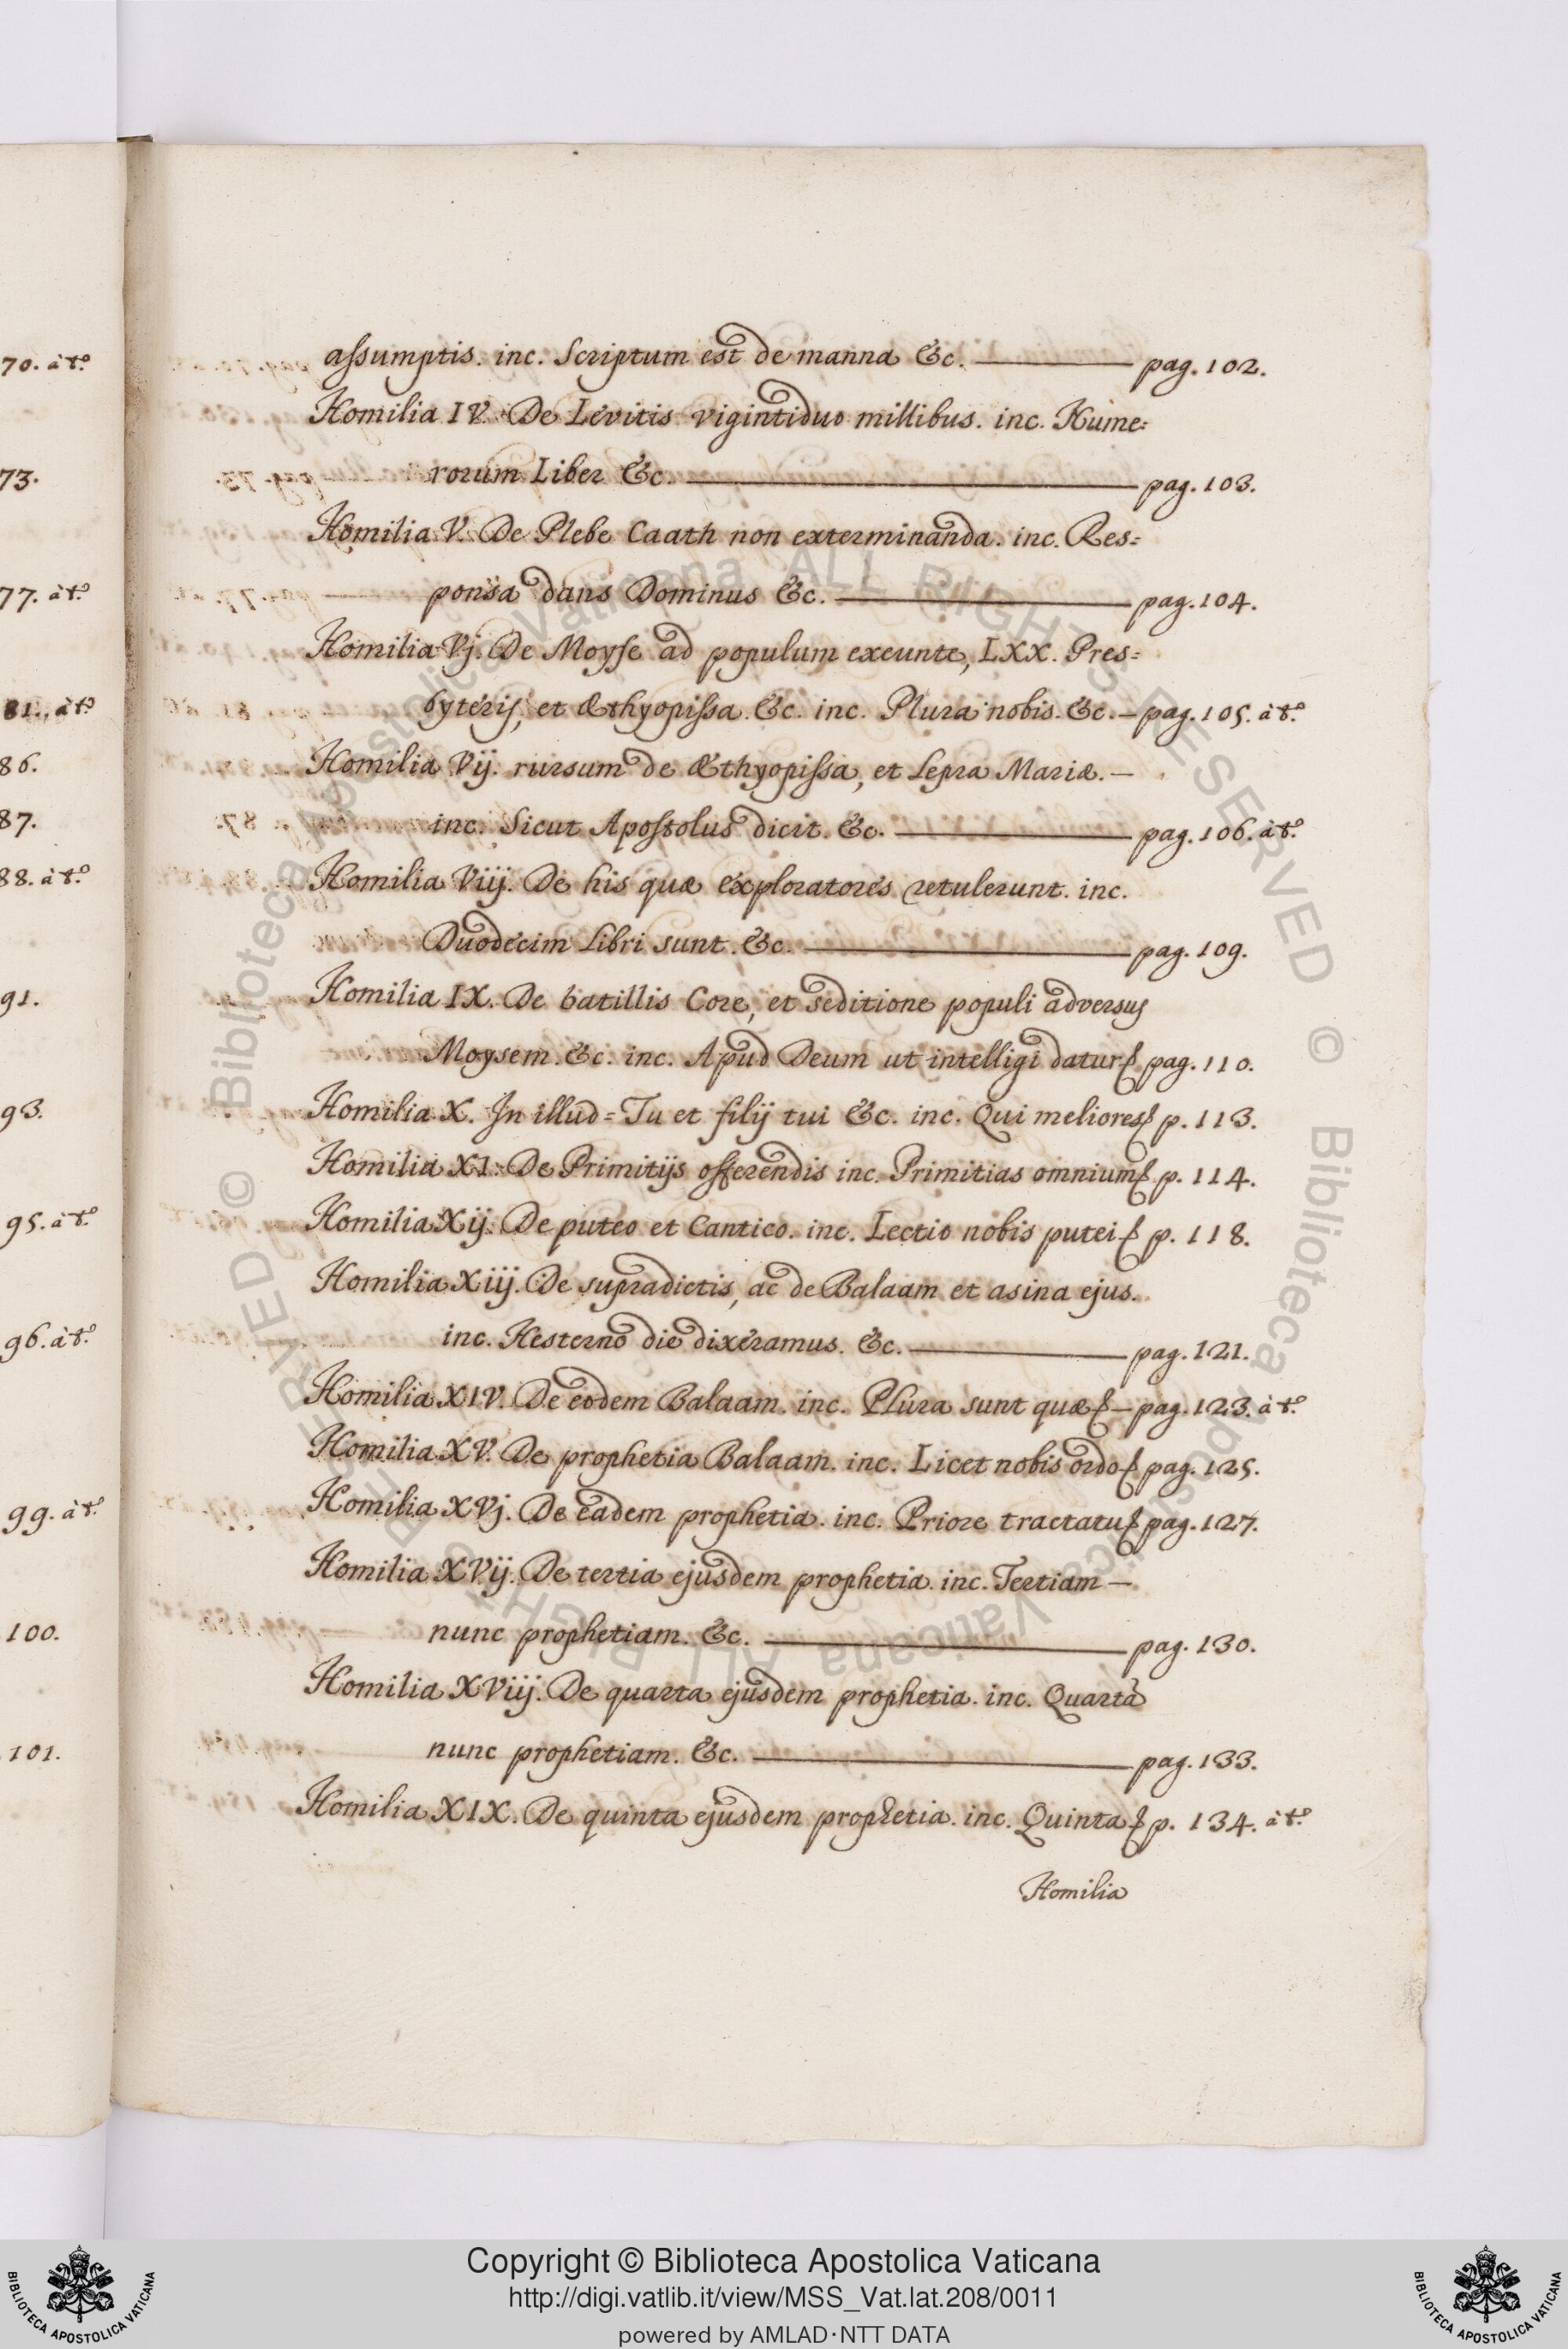 70. à t.º
73.
77. à t.º
81. à t.º
86.
87.
88. à t.º
91.
93.
95. à t.º
96. à t.º
99. à t.º
100.
101.
assumptis. inc. Scriptum est de manna &c. — pag. 102.
Homilia IV. De Levitis vigintiduo millibus. inc. Nume=
rorum Liber &c. — pag. 103.
Homilia V. De Plebe Caath non exterminanda. inc. Res=
ponsa dans Dominus &c. — pag. 104.
Homilia Vj. De Moyse ad populum exeunte, LXX. Pres=
byteris, et Æthyopissa &c. inc. Plura nobis &c. — pag. 105. à t.º
Homilia Vij. rursum de Æthyopissa, et Lepra Mariæ. —
inc. Sicut Apostolus dicit. &c. — pag. 106. à t.º
Homilia Viij. De his quæ exploratores retulerunt. inc.
Duodecim Libri sunt. &c. — pag. 109.
Homilia IX. De batillis Core, et seditione populi adversus
Moysem. &c. inc. Apud Deum ut intelligi datur & pag. 110.
Homilia X. In illud = Tu et filij tui &c. inc. Qui meliores & p. 113.
Homilia XI. De Primitijs offerendis inc. Primitias omnium & p. 114.
Homilia Xij. De puteo et Cantico. inc. Lectio nobis putei & p. 118.
Homilia Xiij. De supradictis, ac de Balaam et asina ejus.
inc. Hesterno die dixeramus. &c. — pag. 121.
Homilia XIV. De eodem Balaam. inc. Plura sunt quæ & — pag. 123. à t.º
Homilia XV. De prophetia Balaam. inc. Licet nobis ordo & pag. 125.
Homilia XVj. De eadem prophetia. inc. Priore tractatu & pag. 127.
Homilia XVij. De tertia ejusdem prophetia. inc. Tertiam —
nunc prophetiam. &c. — pag. 130.
Homilia XViij. De quarta ejusdem prophetia. inc. Quartã
nunc prophetiam. &c. — pag. 133.
Homilia XIX. De quinta ejusdem prophetia. inc. Quinta & p. 134. à t.º
Homilia
© Biblioteca Apostolica Vaticana ALL RIGHTS RESERVED © Biblioteca Apostolica Vaticana ALL RIGHTS RESERVED
Copyright © Biblioteca Apostolica Vaticana
http://digi.vatlib.it/view/MSS_Vat.lat.208/0011
powered by AMLAD·NTT DATA
BIBLIOTECA APOSTOLICA VATICANA
BIBLIOTECA APOSTOLICA VATICANA